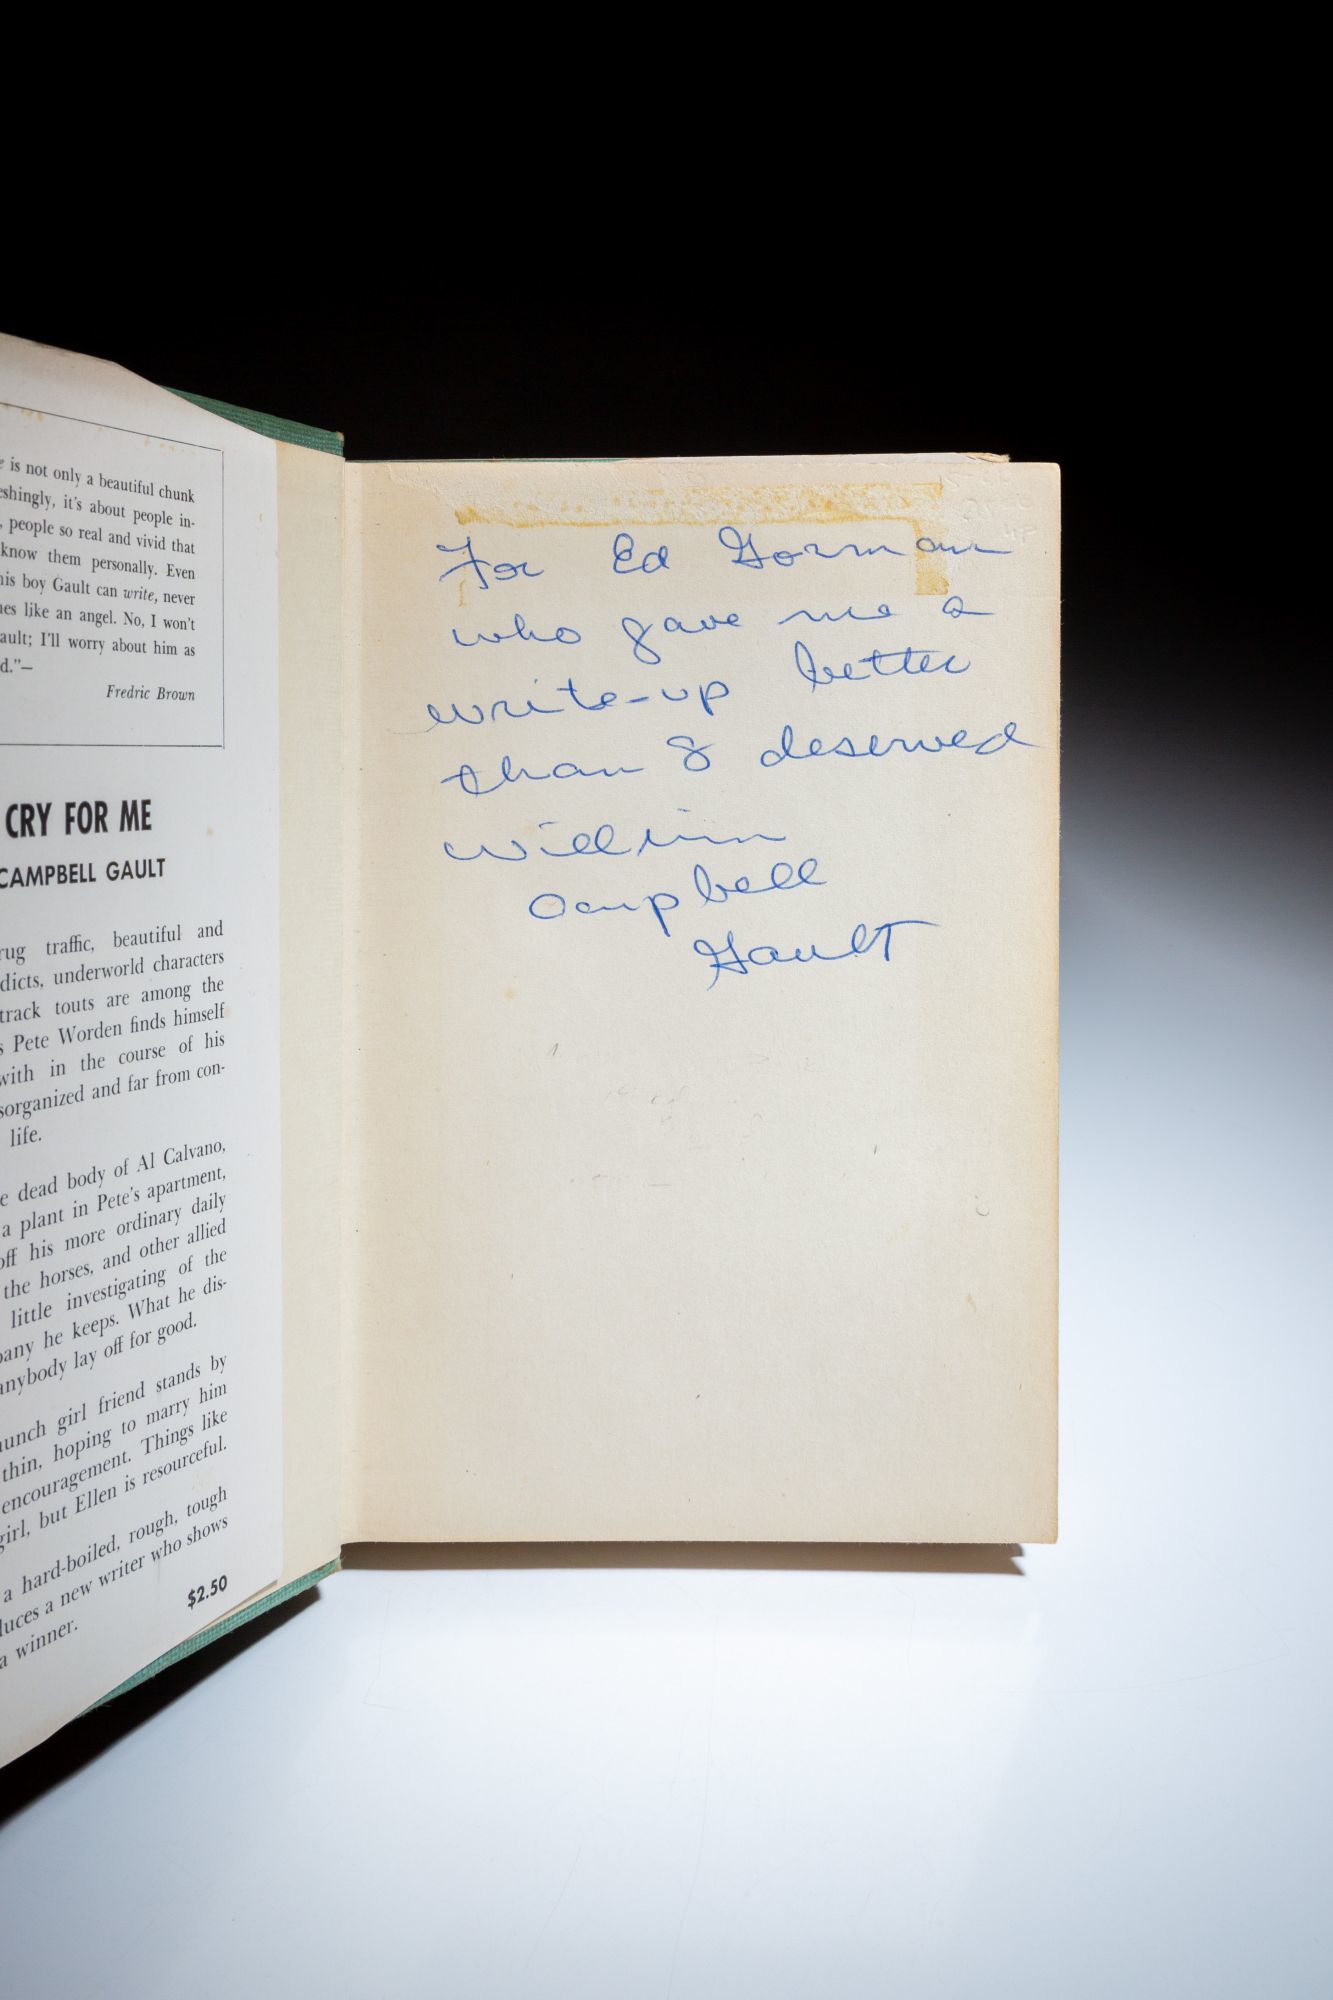 e is not only a beautiful chunk
eshingly, it's about people in-
, people so real and vivid that
know them personally. Even
his boy Gault can write, never
nes like an angel. No, I won't
ault; I'll worry about him as
d."—
Fredric Brown
CRY FOR ME
CAMPBELL GAULT
rug traffic, beautiful and
dicts, underworld characters
track touts are among the
s Pete Worden finds himself
with in the course of his
sorganized and far from con-
life.
e dead body of Al Calvano,
a plant in Pete's apartment,
off his more ordinary daily
the horses, and other allied
little investigating of the
pany he keeps. What he dis-
anybody lay off for good.
aunch girl friend stands by
thin, hoping to marry him
encouragement. Things like
girl, but Ellen is resourceful.
a hard-boiled, rough, tough
duces a new writer who shows
a winner.
$2.50
For Ed Gorman
who gave me a
write-up better
than I deserved
William
Campbell
Gault